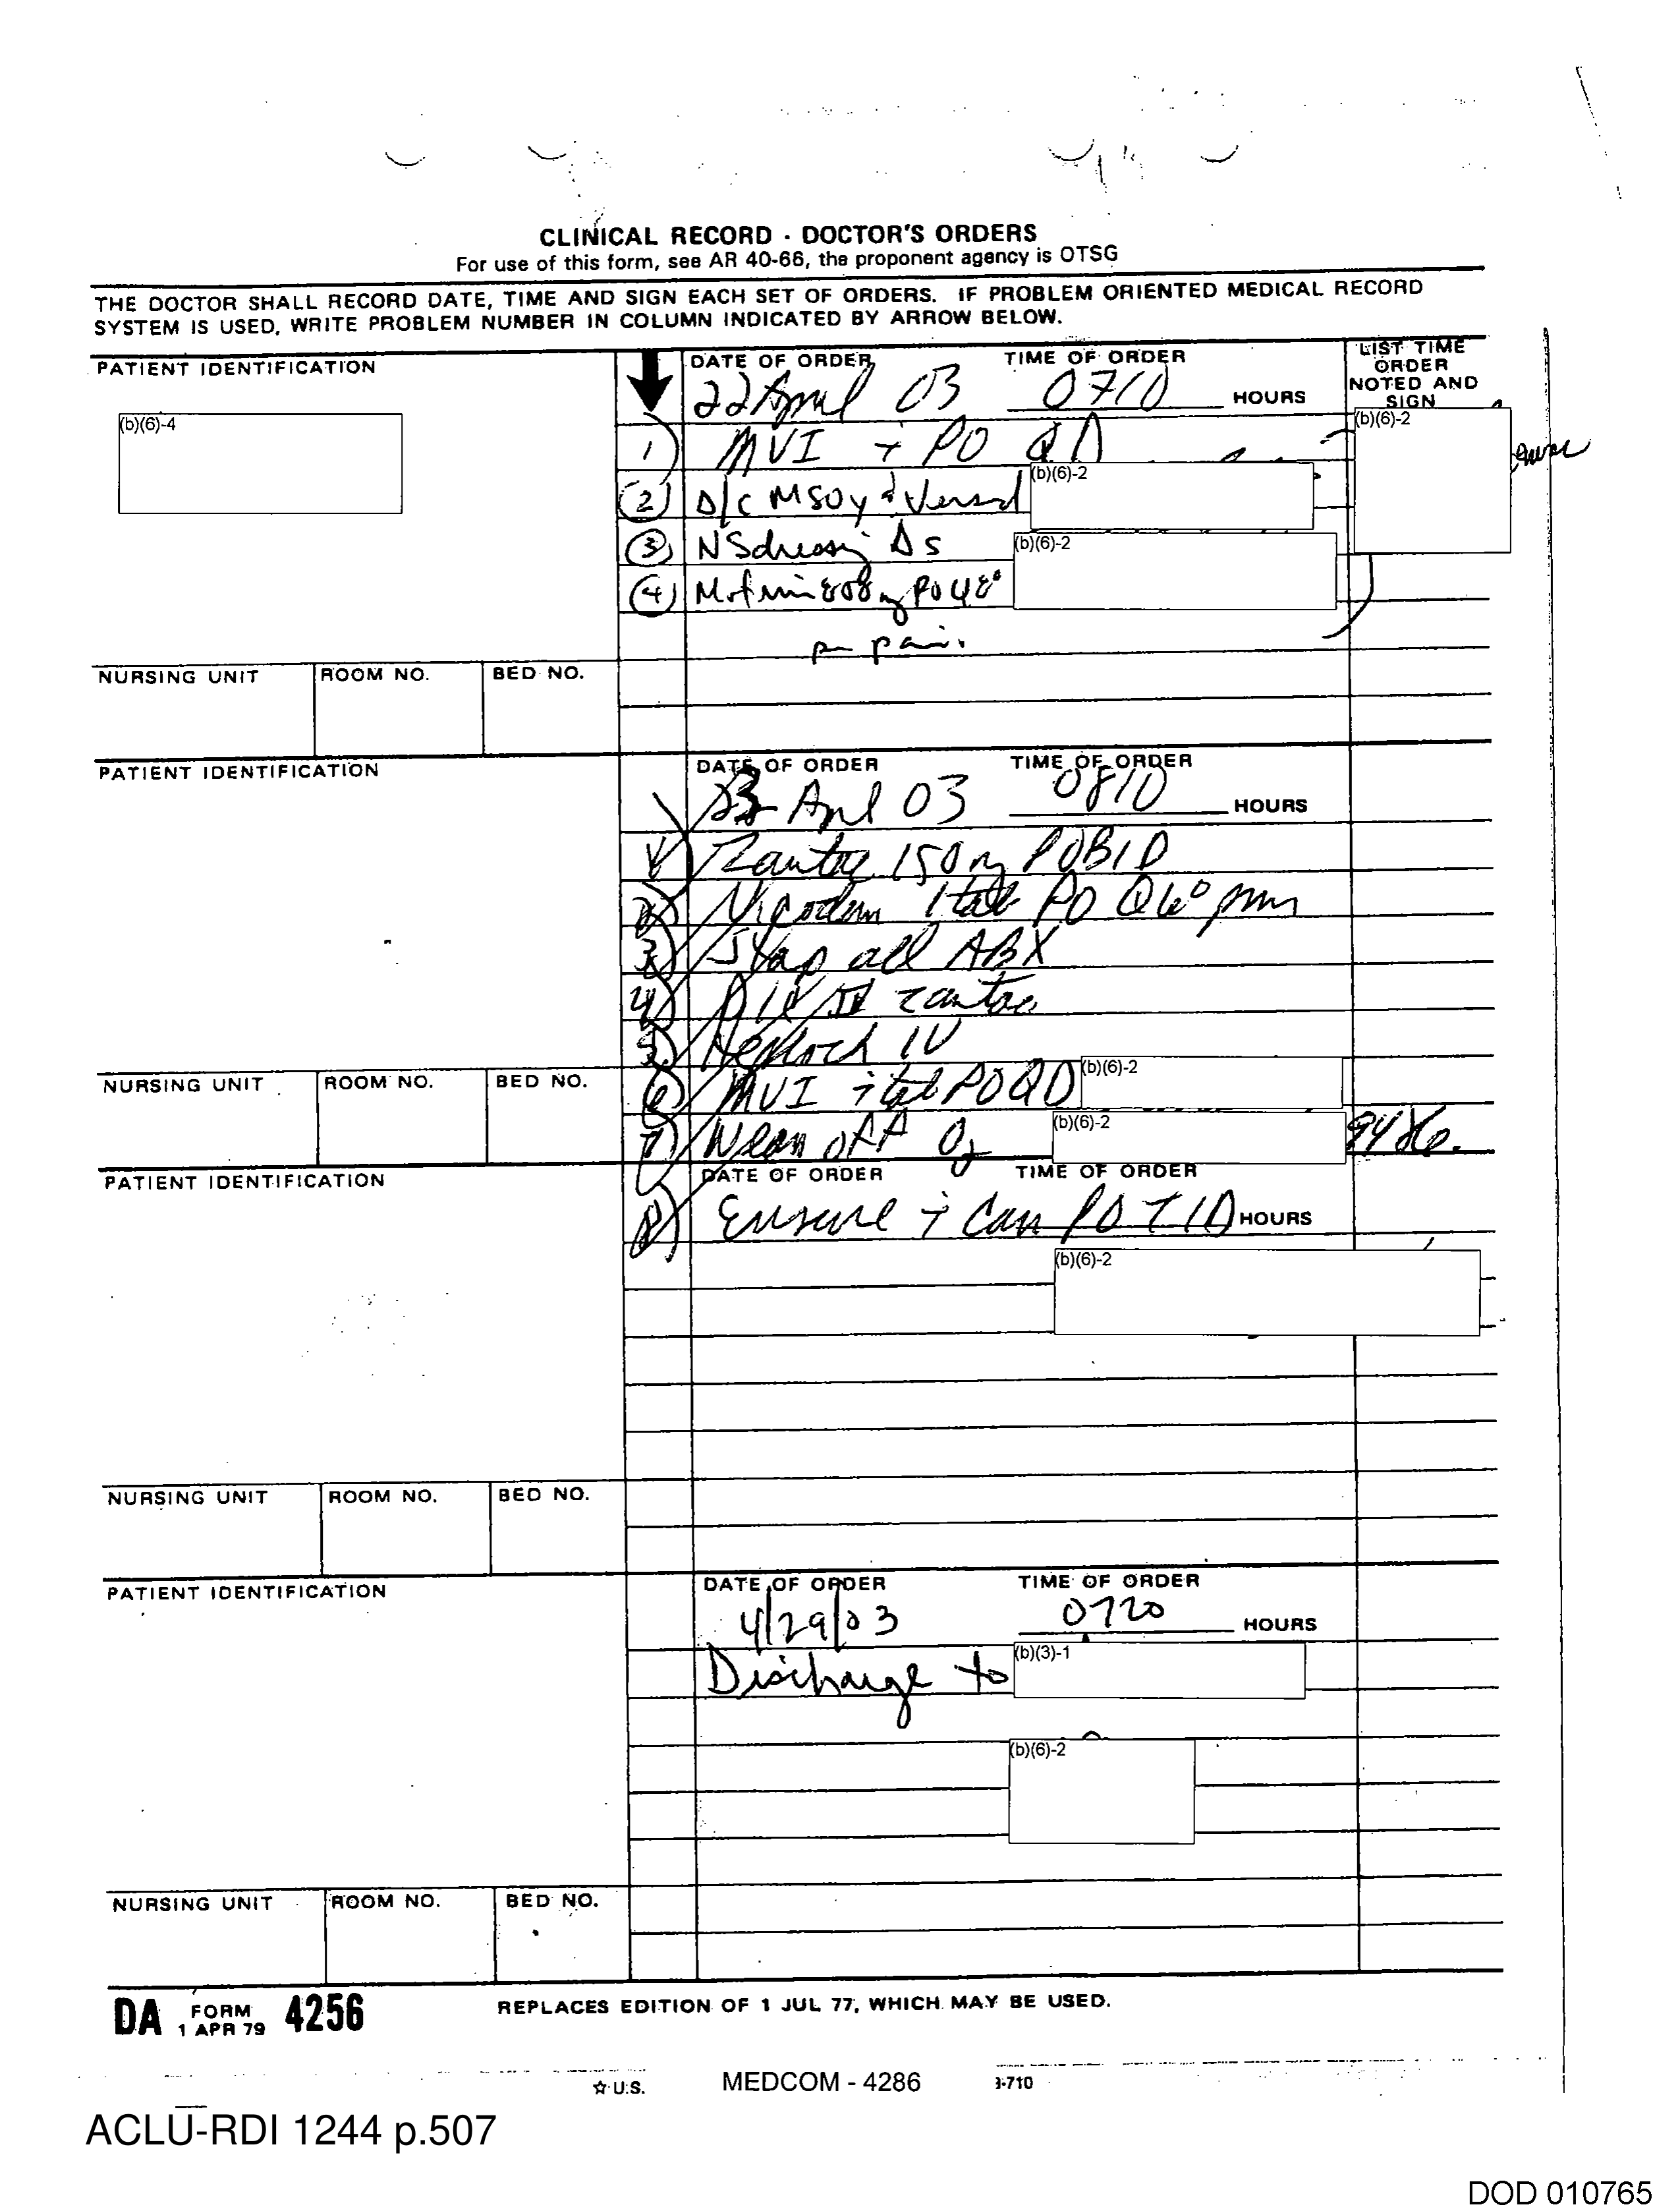 CLINICAL RECORD - DOCTOR'S ORDERS
For use of this form, see AR 40-66, the proponent agency is OTSG
THE DOCTOR SHALL RECORD DATE, TIME AND SIGN EACH SET OF ORDERS. IF PROBLEM ORIENTED MEDICAL RECORD
SYSTEM IS USED, WRITE PROBLEM NUMBER IN COLUMN INDICATED BY ARROW BELOW.
PATIENT IDENTIFICATION
DATE OF ORDER TIME OF ORDER
LIST TIME
ORDER
NOTED AND
SIGN
22 April 03 0710 HOURS
(b)(6)-4
(b)(6)-2
1) MVI + PO QD
(2) D/C MSO4 & Versed (b)(6)-2
(3) NS dressing Δs (b)(6)-2
(4) Motrin 800mg PO q8°
prn pain.
NURSING UNIT ROOM NO. BED NO.
PATIENT IDENTIFICATION
DATE OF ORDER TIME OF ORDER
April 03 0810 HOURS
1) Zantac 150mg PO BID
2) Vicoden 1 tab PO Q6° prn
3) Stop all ABX
4) D/C IV zantac
5) Heplock IV
NURSING UNIT ROOM NO. BED NO.
6) MVI i tab PO QD (b)(6)-2
7) Wean off O2 (b)(6)-2
PATIENT IDENTIFICATION
DATE OF ORDER TIME OF ORDER
8) Ensure i can PO TID HOURS
(b)(6)-2
NURSING UNIT ROOM NO. BED NO.
PATIENT IDENTIFICATION
DATE OF ORDER TIME OF ORDER
4/29/03 0720 HOURS
Discharge to (b)(3)-1
(b)(6)-2
NURSING UNIT ROOM NO. BED NO.
DA FORM 4256
1 APR 79
REPLACES EDITION OF 1 JUL 77, WHICH MAY BE USED.
☆ U.S. MEDCOM - 4286 3-710
ACLU-RDI 1244 p.507
DOD 010765